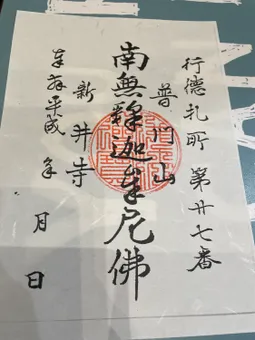 行德札所 第廿七番
普門山
南無釋迦牟尼佛
新井寺
奉拜 平成 年 月 日